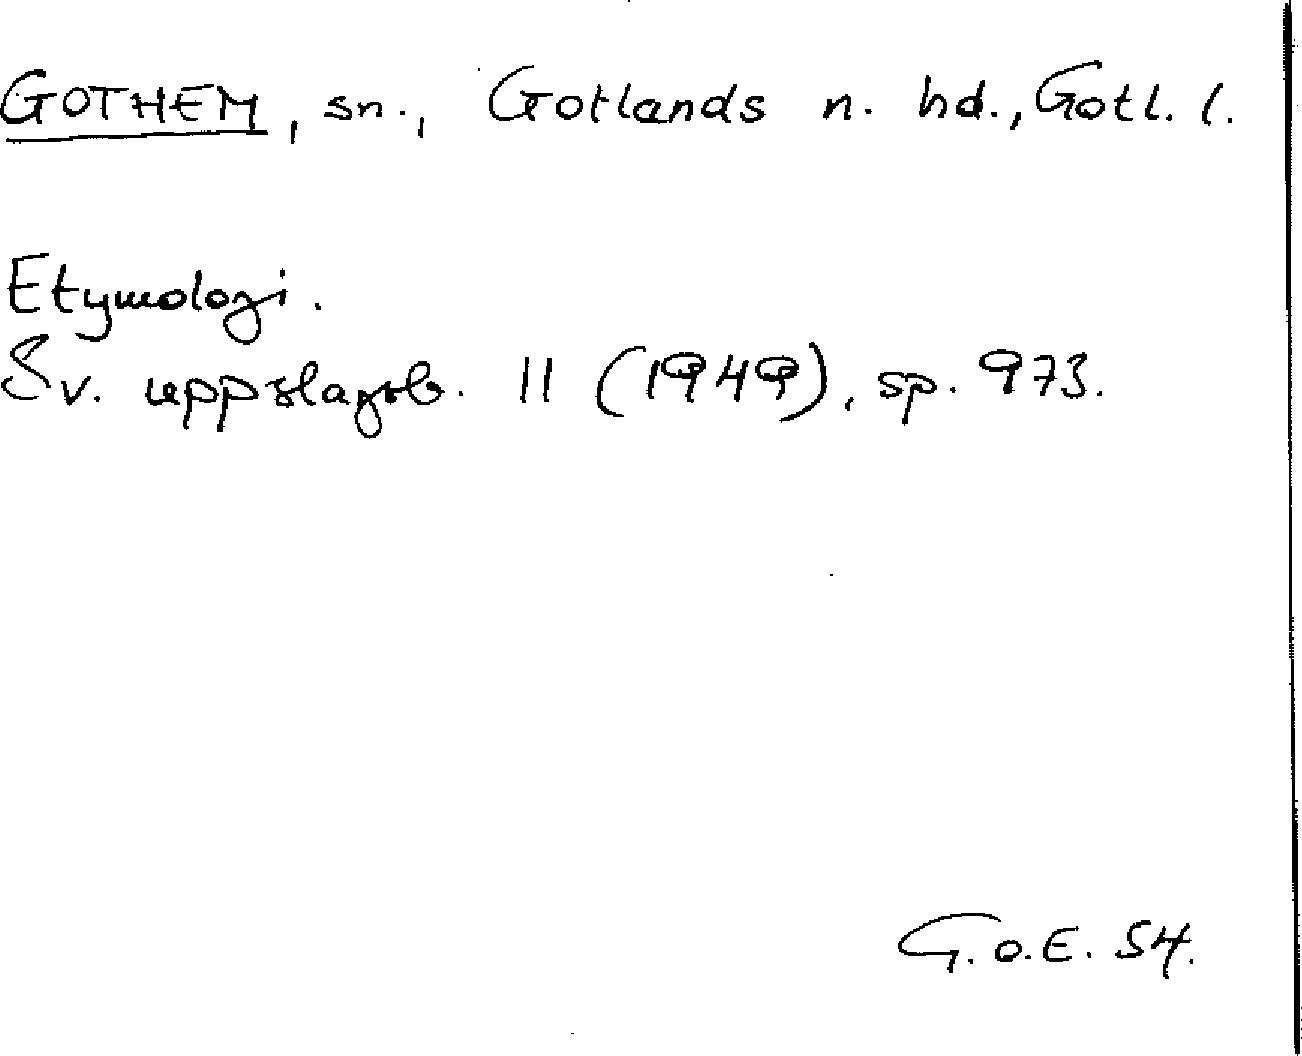 GOTHEM, sn., Gotlands n. hd., Gotl. l.
Etymologi.
Sv. uppslagsb. 11 (1949), sp. 973.
G.O.E. 54.